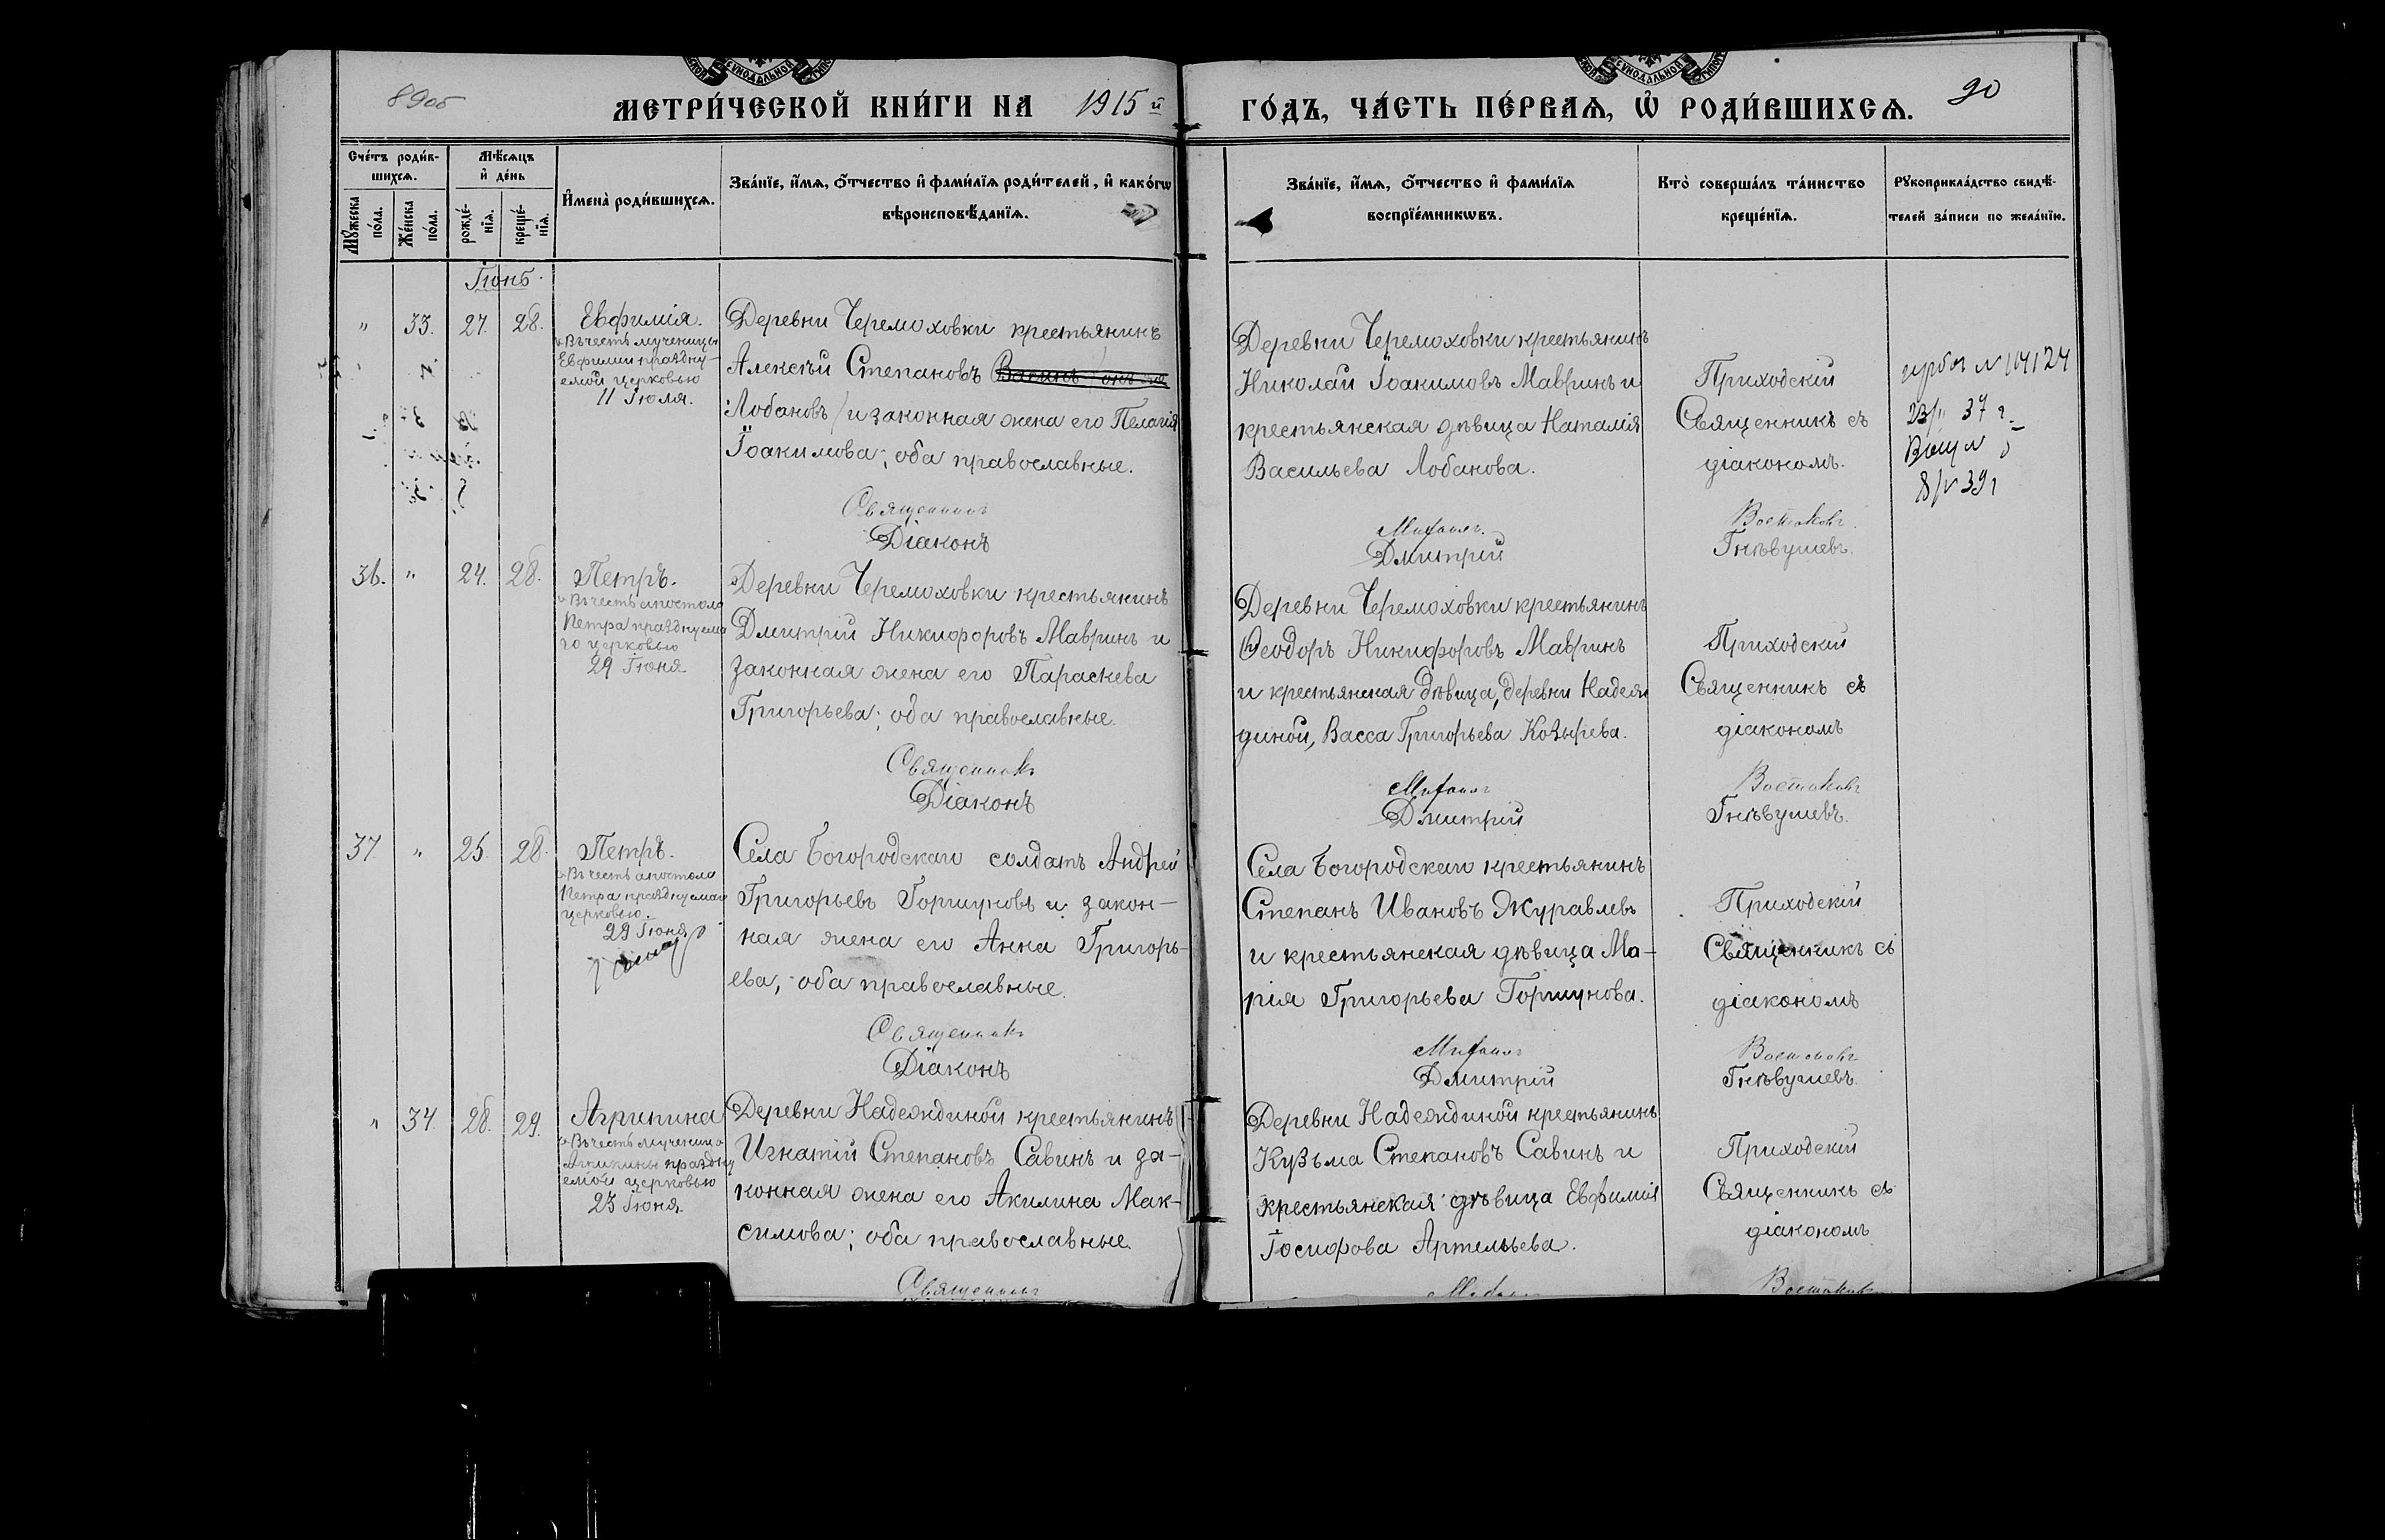 89об
МЕТРИ́ЧЕСКОЙ КНИ́ГИ НА 1915й
ГО́ДЪ, ЧА́СТЬ ПЕ́РВАѦ, Ѡ҆ РОДИ́ВШИХСѦ.
90
Сче́тъ роди́в-
шихсѧ.
Мꙋ́жеска
по́ла.
Же́нска
по́ла.
Мѣ́сѧцъ
и҆ де́нь
рожде́-
нїѧ.
креще́-
нїѧ.
И҆мена̀ роди́вшихсѧ.
Зва́нїе, и҆́мѧ, ѻ҆́тчество и҆ фами́лїѧ роди́телей, и҆ како́гѡ
вѣроисповѣ́данїѧ.
Зва́нїе, и҆́мѧ, ѻ҆́тчество и҆ фами́лїѧ
воспрїе́мникѡвъ.
Кто̀ соверша́лъ та́инство
креще́нїѧ.
Рꙋкоприкла́дство свидѣ́-
телей за́писи по жела́нїю.
Іюнь.
" 33. 27. 28.
Евфимія.
Въ честь мученицы
Евфиміи праздну-
емой церковью
11 Іюля.
Деревни Черемоховки крестьянинъ
Алексѣй Степановъ
Лобановъ) и законная жена его Пелагія
Іоакимова; оба православные.
Священникъ
Діаконъ
Деревни Черемоховки крестьянинъ
Николай Іоакимовъ Мавринъ и
крестьянская дѣвица Наталія
Васильева Лобанова.
Дмитрій
Приходскій
Священникъ съ
діакономъ.
Востоковъ.
Гнѣвушевъ.
37 г.
36. " 24. 28.
Петръ.
Въ честь апостола
Петра празднуема
го церковью
29 Іюня.
Деревни Черемоховки крестьянинъ
Дмитрій Никифоровъ Мавринъ и
законная жена его Параскева
Григорьева; оба православные.
Священникъ
Діаконъ
Деревни Черемоховки крестьянинъ
Ѳеодоръ Никифоровъ Мавринъ
и крестьянская дѣвица, деревни Надеж
диной, Васса Григорьева Козырева.
Дмитрій
Приходскій
Священникъ съ
діакономъ
Востоковъ
Гнѣвушевъ.
37. " 25. 28.
Петръ.
Въ честь апостола
Петра празднуемаго
церковью.
29 Іюня
Села Богородскаго солдатъ Андрей
Григорьевъ Горшуновъ и закон-
ная жена его Анна Григорь-
ева; оба православные.
Священникъ
Діаконъ
Села Богородскаго крестьянинъ
Степанъ Ивановъ Журавлевъ
и крестьянская дѣвица Ма-
рія Григорьева Горшунова.
Дмитрій
Приходскій
Священникъ съ
діакономъ
Востоковъ
Гнѣвушевъ.
" 34. 28. 29.
Агрипина
Въ честь мученицы
праздну
емой церковью
23 Іюня.
Деревни Надеждиной крестьянинъ
Игнатій Степановъ Савинъ и за-
конная жена его Акилина Мак-
симова; оба православные.
Священникъ
Деревни Надеждиной крестьянинъ
Кузьма Степановъ Савинъ и
крестьянская дѣвица Евфимія
Іосифова Артемьева.
Приходскій
Священникъ съ
діакономъ
Востоковъ